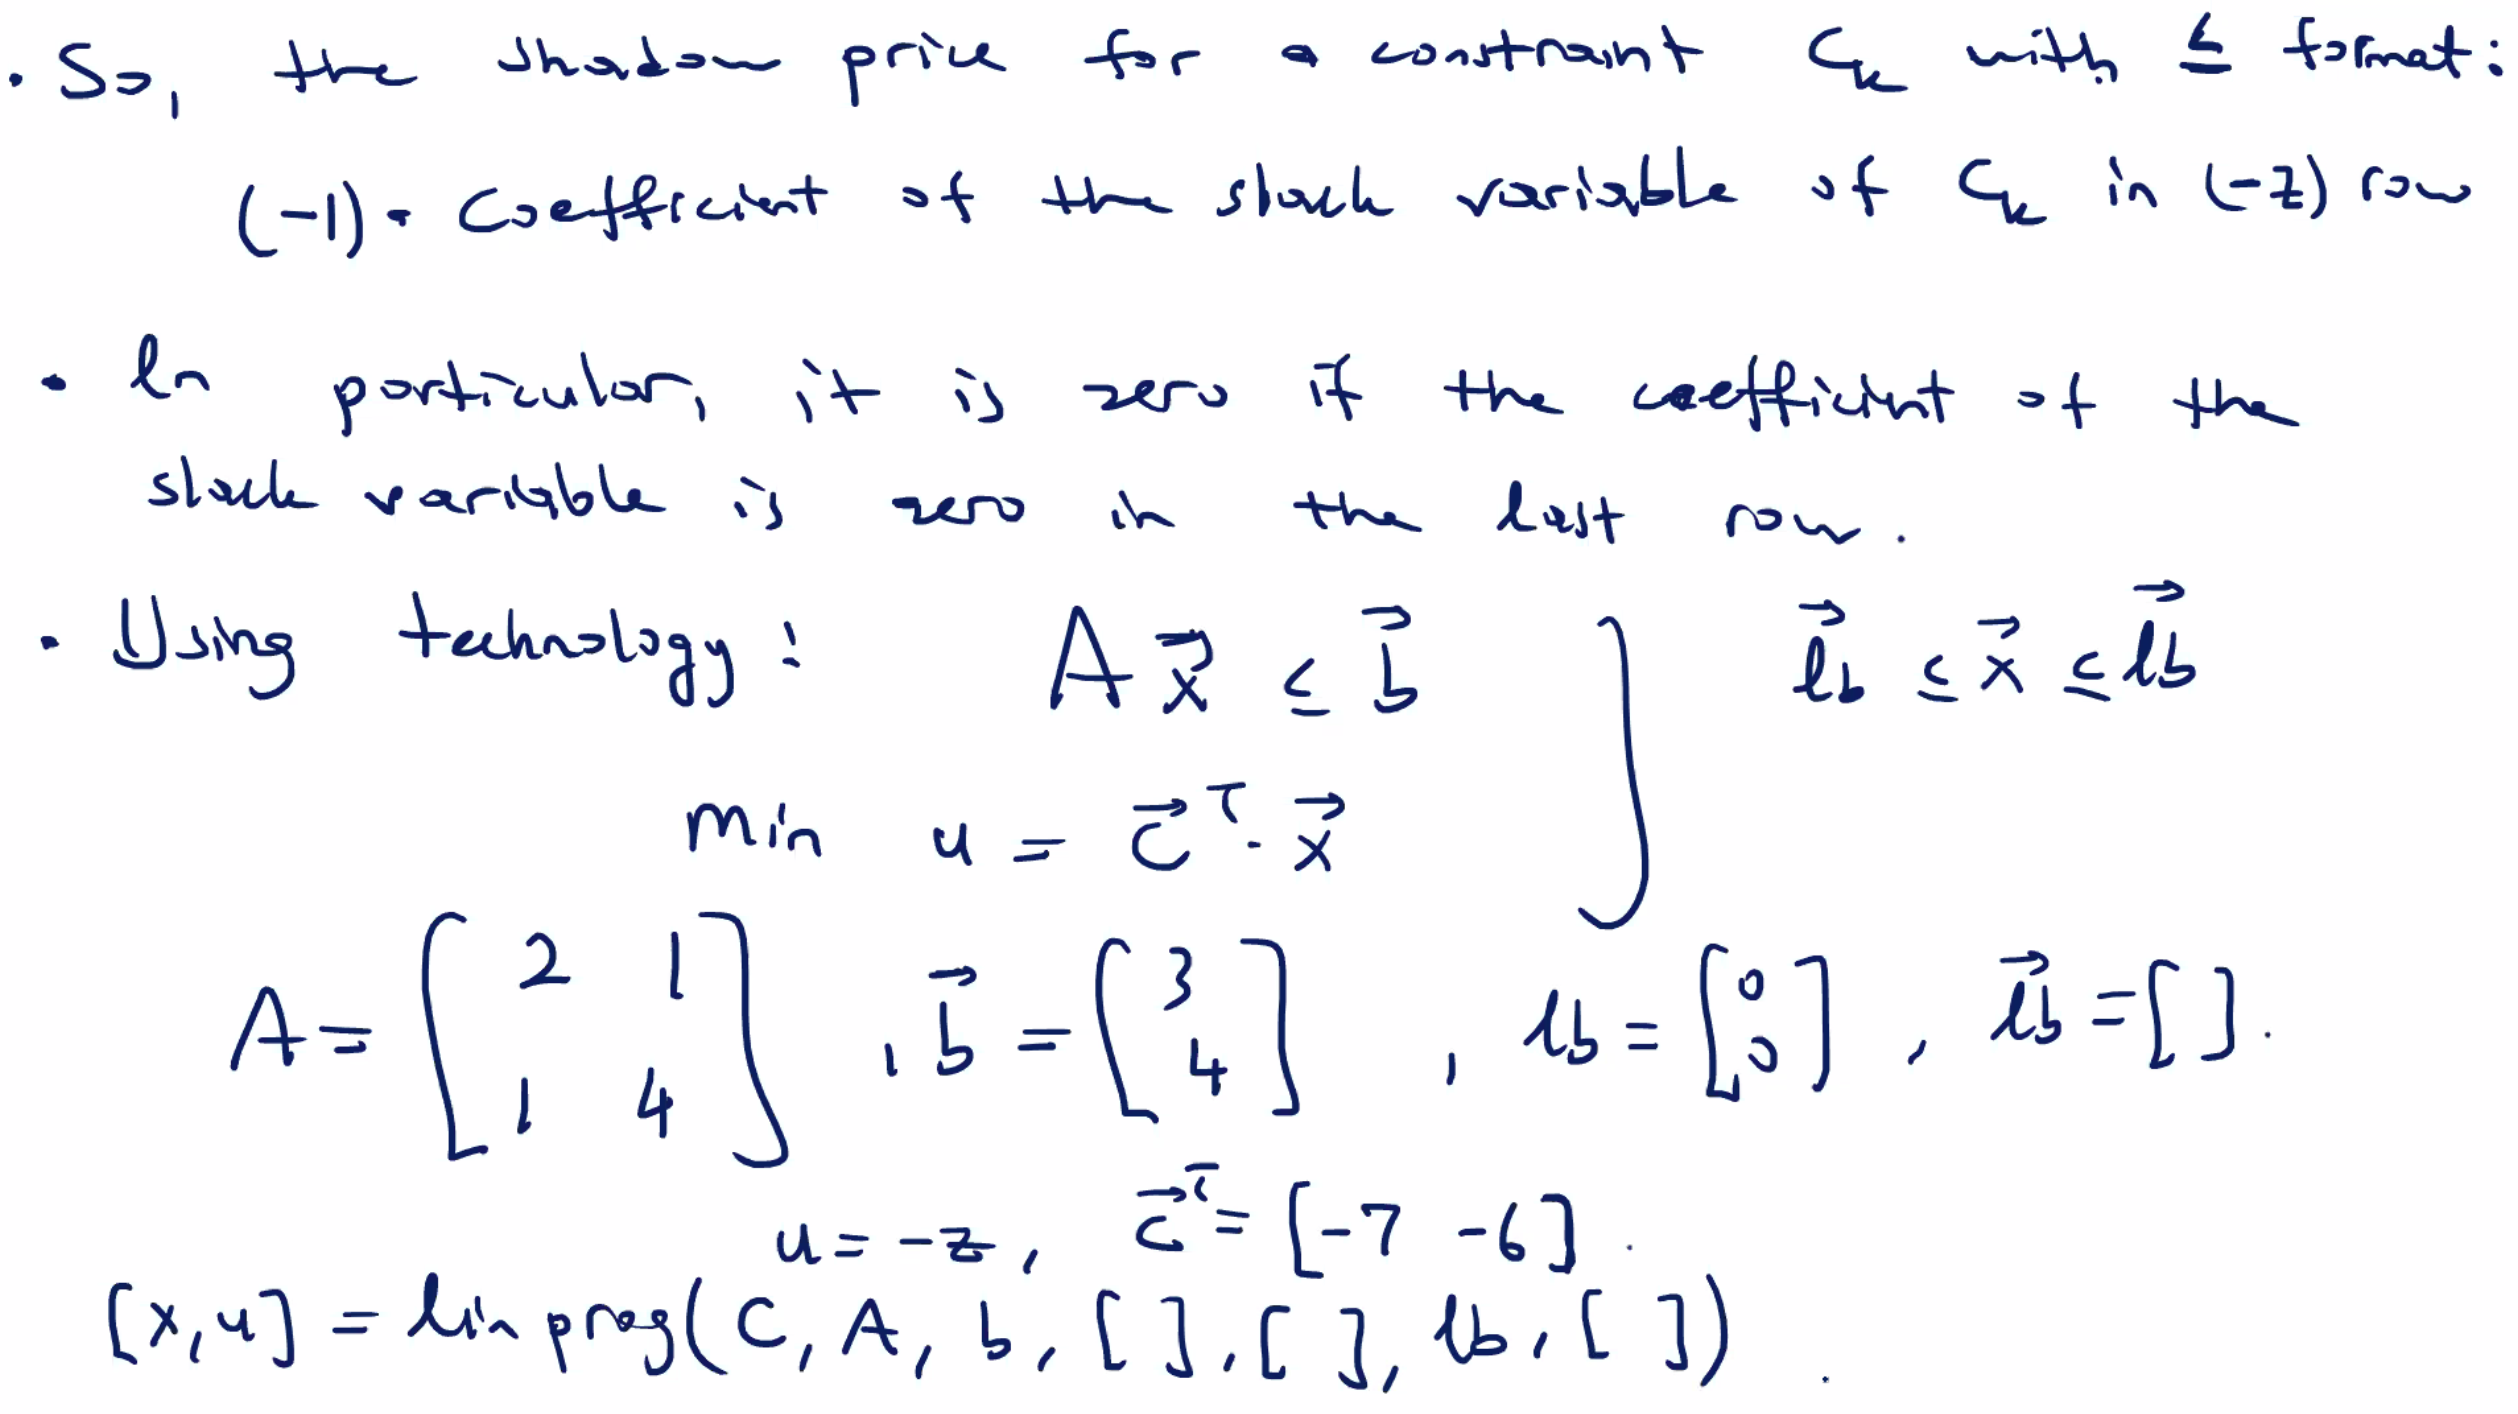 • So, the shadow price for a constraint Cₖ with ≤ format:
(-1) • Coefficient of the slack variable of Cₖ in (-z) row
• In particular, it is zero if the coefficient of the
slack variable is zero in the last row.
• Using technology: A x⃗ ≤ b⃗ } l⃗b ≤ x⃗ ≤ l⃗b
Min u = c⃗ᵀ · x⃗
A = [2 1; 1 4], b⃗ = [3; 4], lb = [0; 0], l⃗b = [ ].
u = -z, c⃗ᵀ = [-7 -6].
[x, u] = linprog(C, A, b, [ ], [ ], lb, [ ]).